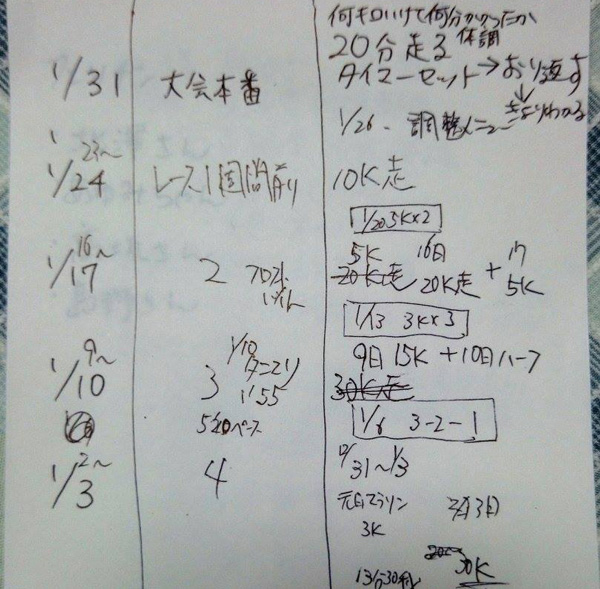 何キロいけて何分かかったか
20分走る 体調
タイマーセット→おり返す
↓
きょりわかる
1/31 大会本番
1/26. 調整メニュー
1/23〜
1/24 レース1週間前 10K走
1/20 3K×2
1/16〜
1/17 2
5K 16日 17
20K走 20K走 + 5K
1/13 3K×3
1/9〜
1/10 3
1/10
タニマリ
1:55
9日 15K + 10日ハーフ
30K走
5:20ペース
1/6 3-2-1
1/2〜
1/3 4
12/31〜1/3
元旦マラソン
3K
30K
13分30秒